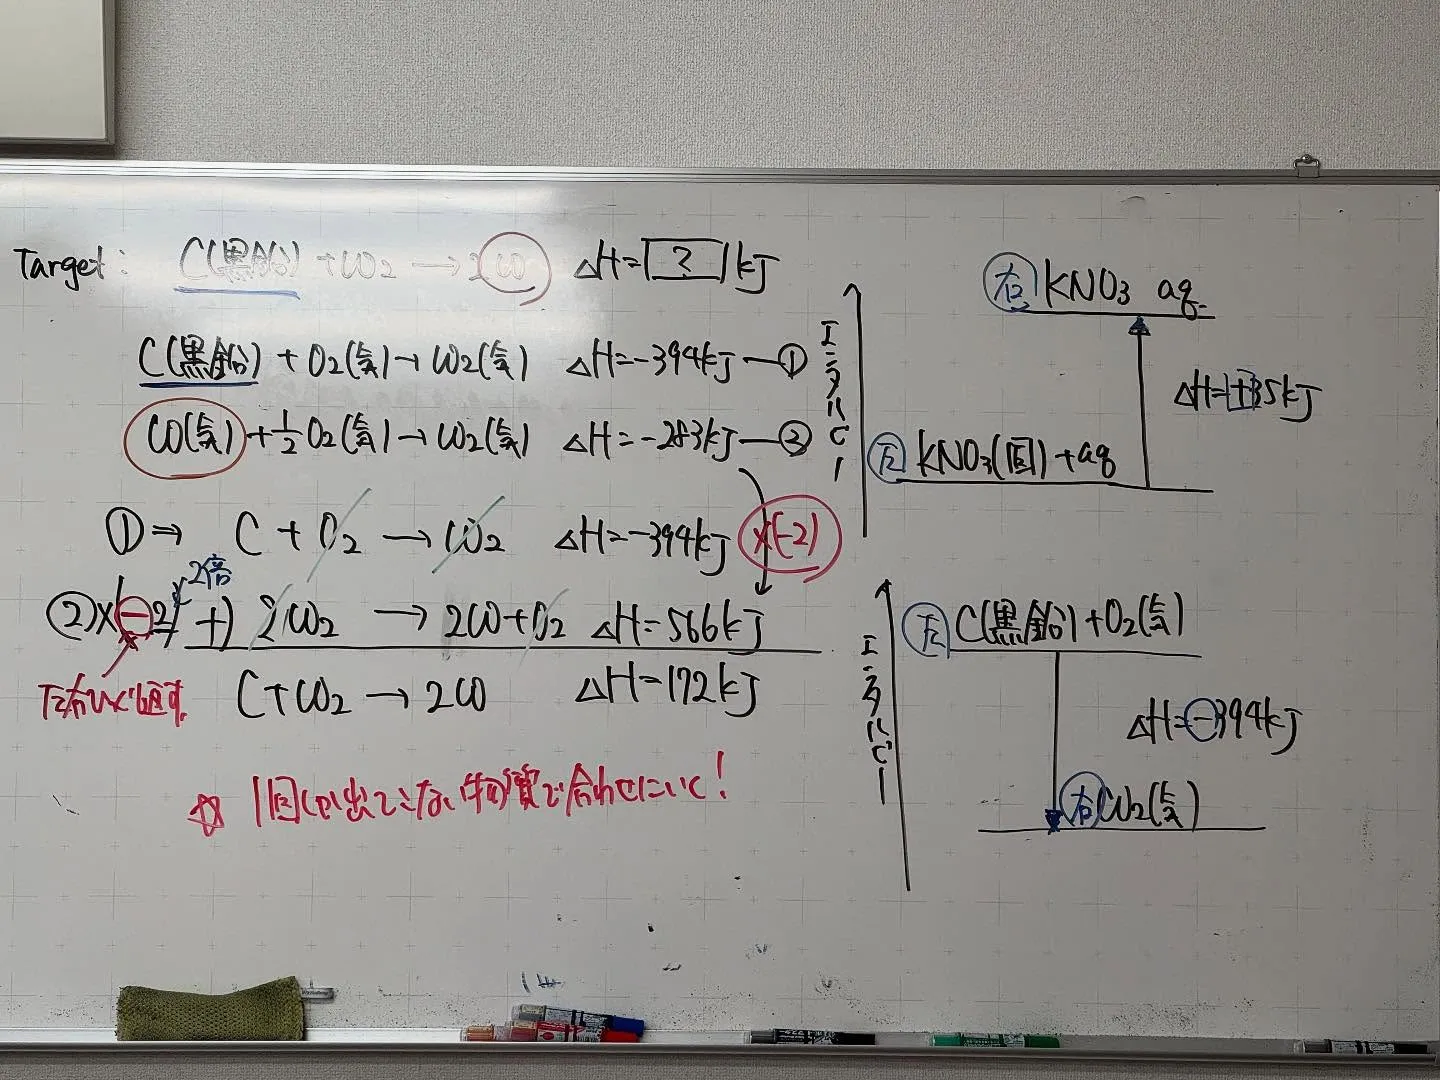 Target: C(黒鉛)+CO2→2CO ΔH=?kJ
C(黒鉛)+O2(気)→CO2(気) ΔH=-394kJ―①
CO(気)+1/2O2(気)→CO2(気) ΔH=-283kJ―②
①⇒ C+O2→CO2 ΔH=-394kJ ×(-2)
2倍
②×(-2) +) 2CO2→2CO+O2 ΔH=566kJ
左右ひっくり返す
C+CO2→2CO ΔH=172kJ
☆1回しか出てこない物質で合わせにいく!
エネルギー
右 KNO3 aq
ΔH=+35kJ
左 KNO3(固)+aq
エネルギー
左 C(黒鉛)+O2(気)
ΔH=-394kJ
右 CO2(気)